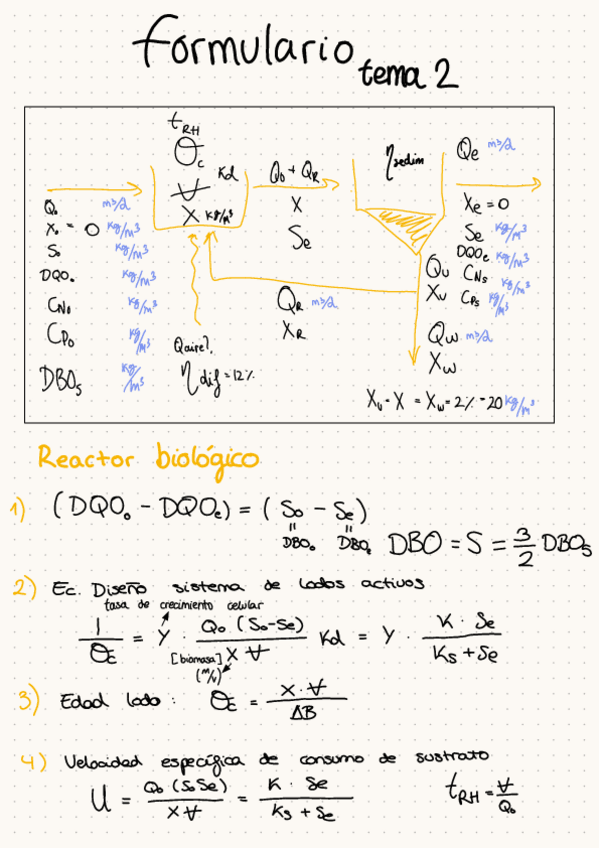 Formulario
tema 2
tRH
θc
Kd
∀
X Kg/m³
Q₀ m³/d
X₀ = 0 Kg/m³
S₀ Kg/m³
DQO₀ Kg/m³
CN₀ Kg/m³
CP₀ Kg/m³
DBO₅ Kg/m³
Qaire?,
η dif = 12%
Q₀ + QR
X
Se
QR m³/d
XR
ηsedim
Qe m³/d
Xe = 0
Se Kg/m³
DQOe Kg/m³
CNs Kg/m³
CPs Kg/m³
Qu
Xu
Qw m³/d
Xw
Xu - X = Xw = 2% - 20 Kg/m³
Reactor biológico
1) (DQO₀ - DQOe) = (S₀ - Se)
" "
DBO₀ DBOe DBO = S = 3/2 DBO₅
2) Ec. Diseño sistema de lodos activos
tasa de crecimiento celular
1/θc = Y · Q₀ (S₀-Se)/X∀ Kd = Y · K · Se/Ks + Se
[biomasa]
(m/v)
3) Edad lodo : θc = X·∀/ΔB
4) Velocidad específica de consumo de sustrato
U = Q₀ (S₀Se)/X∀ = K · Se/Ks + Se tRH = ∀/Q₀